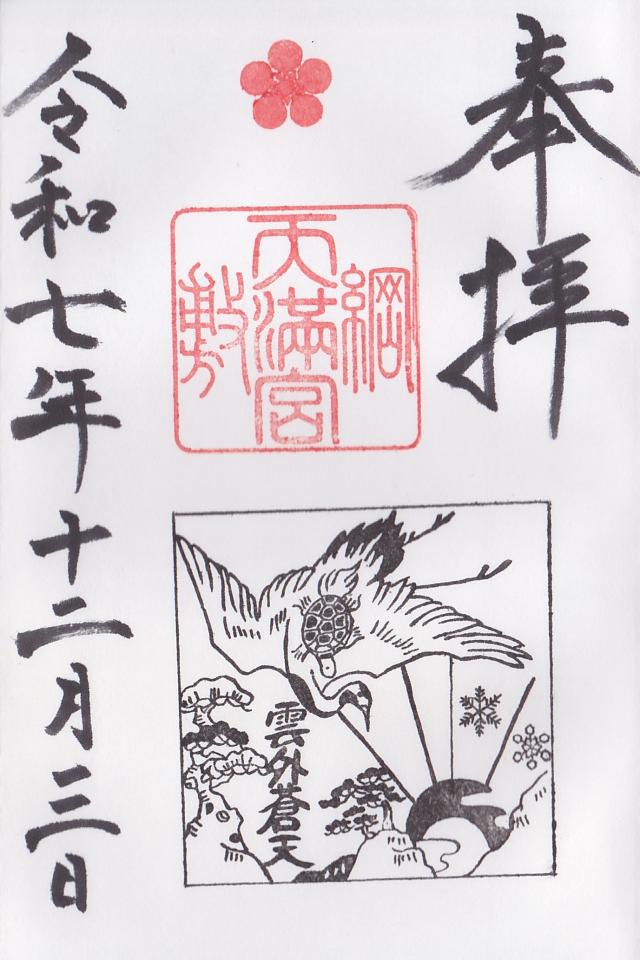 奉拝
綱敷
天満宮
雲外蒼天
令和七年十二月三日